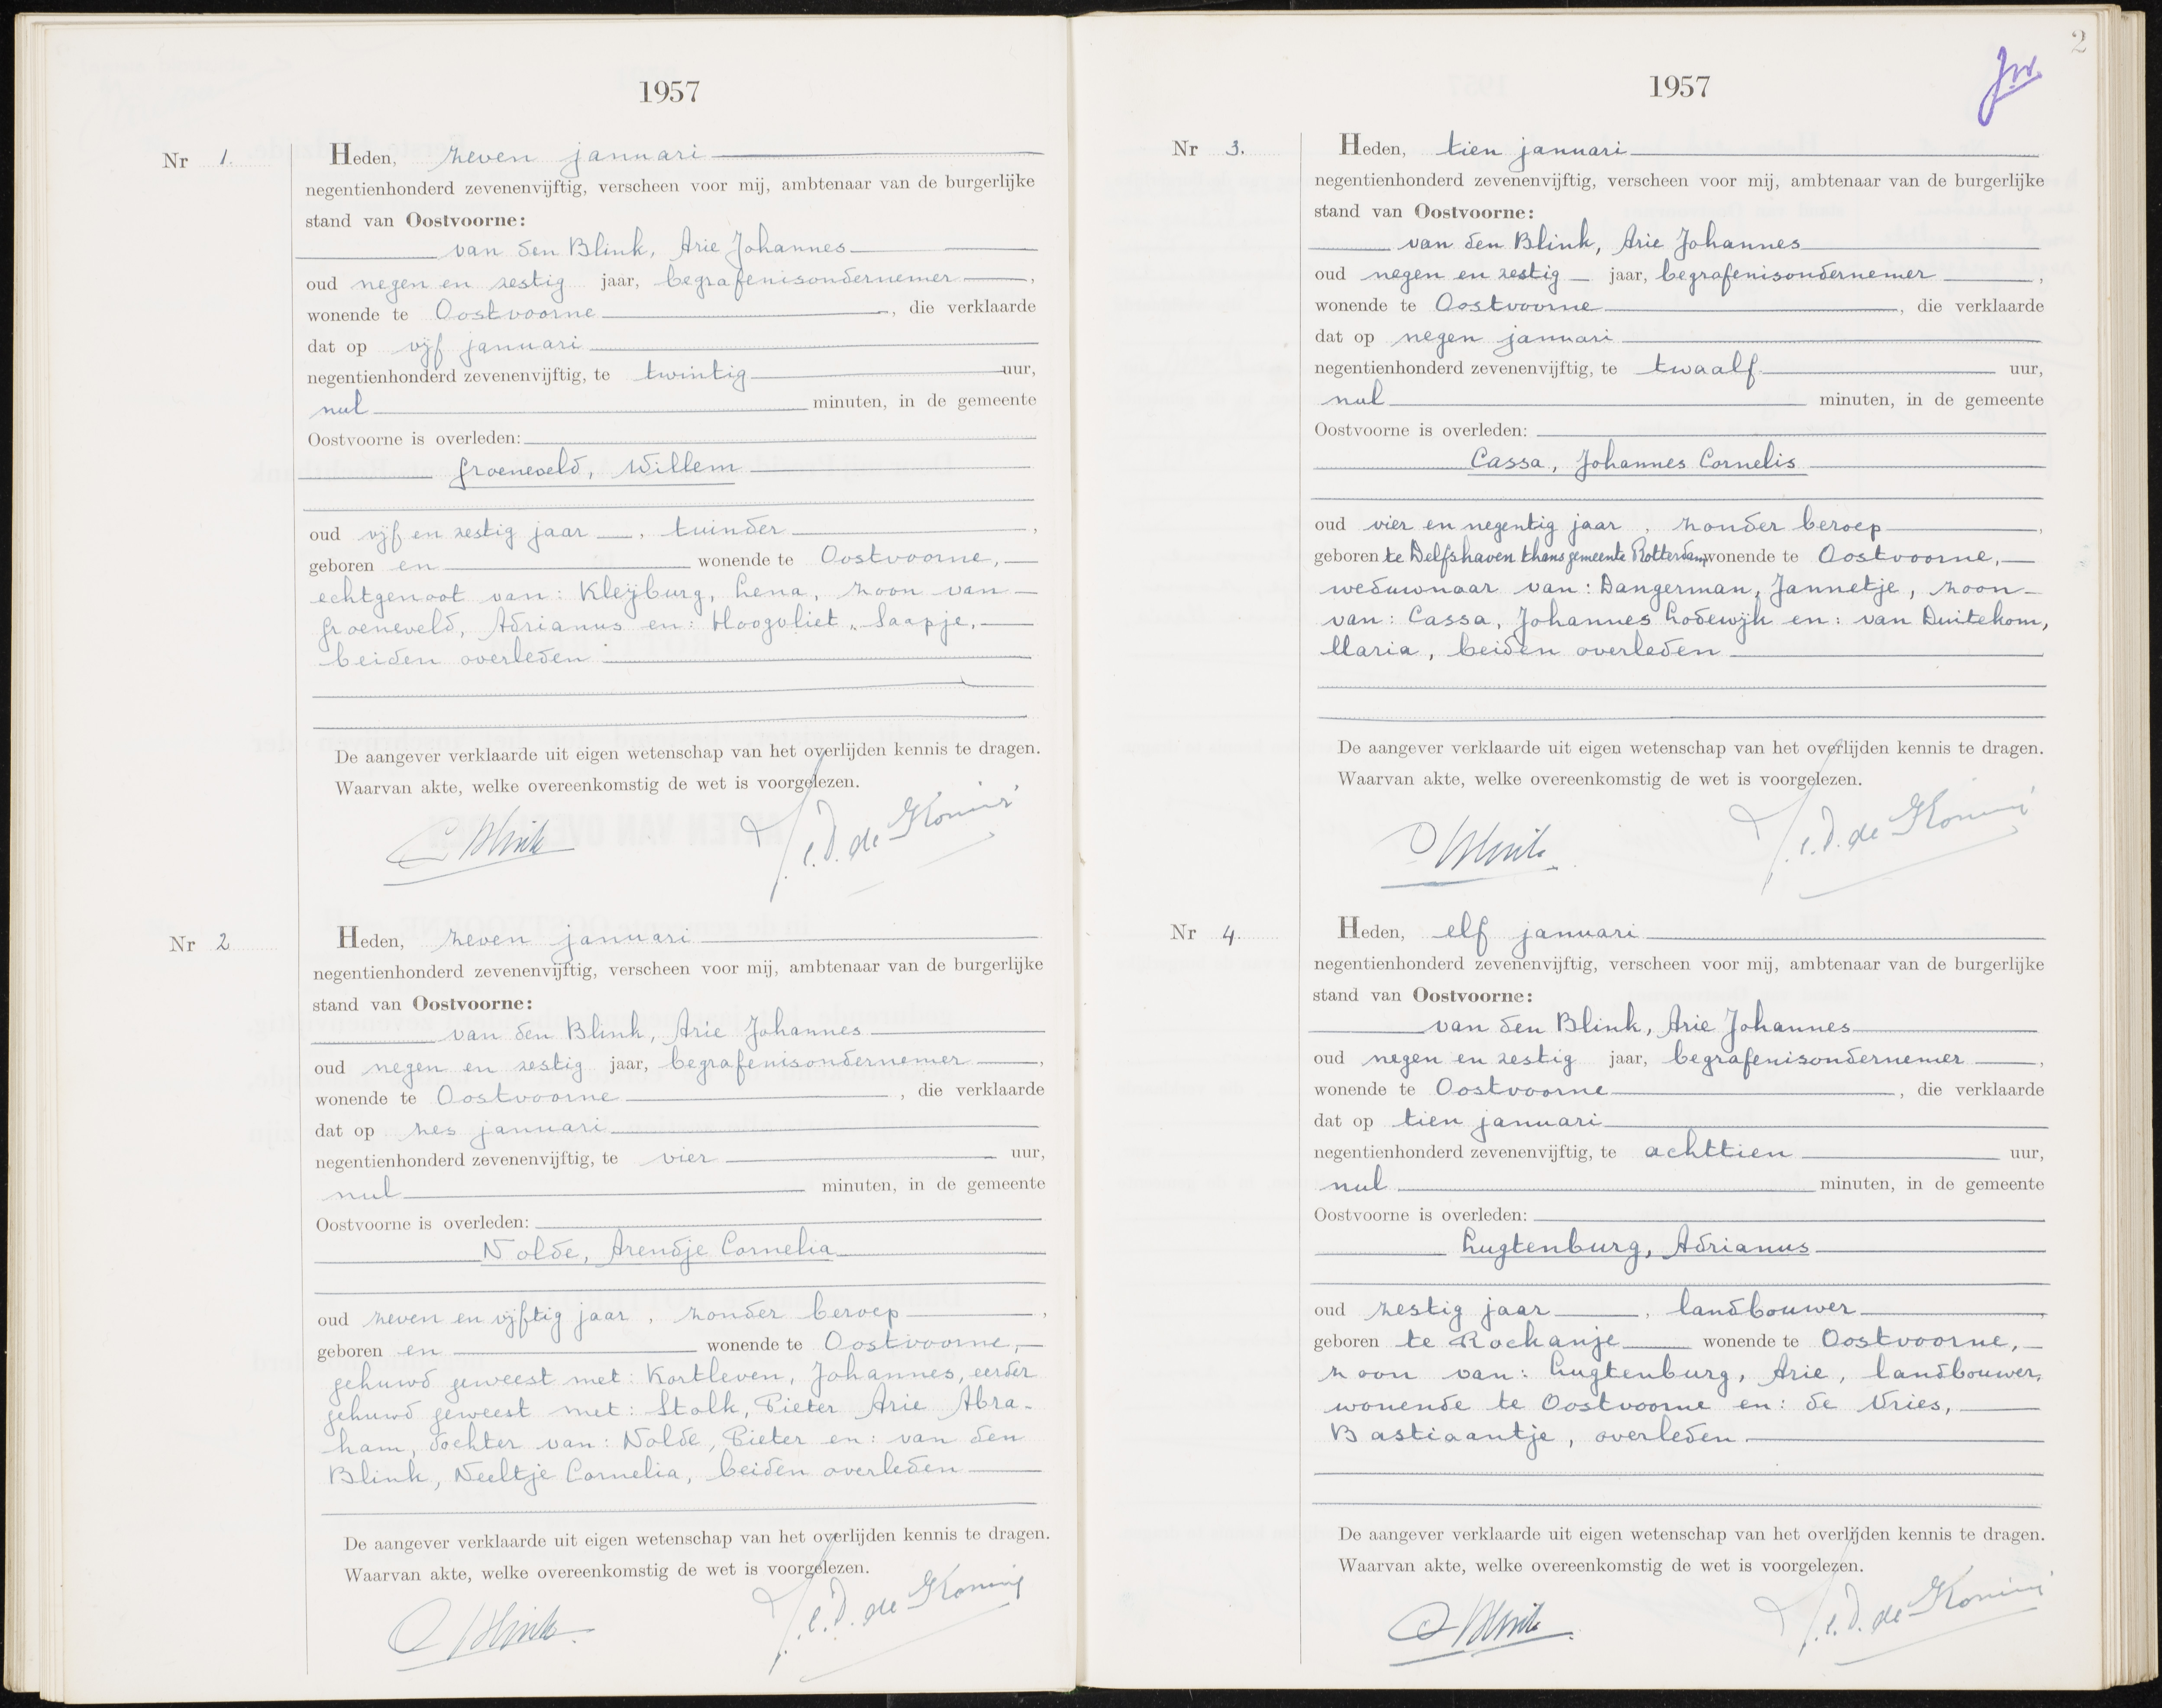 1957
Nr 1.
Heden, zeven januari
negentienhonderd zevenenvijftig, verscheen voor mij, ambtenaar van de burgerlijke
stand van Oostvoorne:
van den Blink, Arie Johannes
oud negen en zestig jaar, begrafenisondernemer,
wonende te Oostvoorne, die verklaarde
dat op vijf januari
negentienhonderd zevenenvijftig, te twintig uur,
nul minuten, in de gemeente
Oostvoorne is overleden:
Groeneveld, Willem
oud vijf en zestig jaar, tuinder,
geboren en wonende te Oostvoorne,
echtgenoot van: Kleijburg, Lena, zoon van
Groeneveld, Adrianus en: Hoogvliet, Saapje,
beiden overleden
De aangever verklaarde uit eigen wetenschap van het overlijden kennis te dragen.
Waarvan akte, welke overeenkomstig de wet is voorgelezen.
Blink de Koning
Nr 2
Heden, zeven januari
negentienhonderd zevenenvijftig, verscheen voor mij, ambtenaar van de burgerlijke
stand van Oostvoorne:
van den Blink, Arie Johannes
oud negen en zestig jaar, begrafenisondernemer,
wonende te Oostvoorne, die verklaarde
dat op zes januari
negentienhonderd zevenenvijftig, te vier uur,
nul minuten, in de gemeente
Oostvoorne is overleden:
Nolde, Arendje Cornelia
oud zeven en vijftig jaar, zonder beroep,
geboren en wonende te Oostvoorne,
gehuwd geweest met: Kortleven, Johannes, eerder
gehuwd geweest met: Stolk, Pieter Arie Abra-
ham, dochter van: Nolde, Pieter en: van den
Blink, Neeltje Cornelia, beiden overleden
De aangever verklaarde uit eigen wetenschap van het overlijden kennis te dragen.
Waarvan akte, welke overeenkomstig de wet is voorgelezen.
Blink de Koning
2
1957
Nr 3.
Heden, tien januari
negentienhonderd zevenenvijftig, verscheen voor mij, ambtenaar van de burgerlijke
stand van Oostvoorne:
van den Blink, Arie Johannes
oud negen en zestig jaar, begrafenisondernemer,
wonende te Oostvoorne, die verklaarde
dat op negen januari
negentienhonderd zevenenvijftig, te twaalf uur,
nul minuten, in de gemeente
Oostvoorne is overleden:
Cassa, Johannes Cornelis
oud vier en negentig jaar, zonder beroep,
geboren te Delfshaven thans gemeente Rotterdam, wonende te Oostvoorne,
weduwnaar van: Dangerman, Jannetje, zoon
van: Cassa, Johannes Lodewijk en: van Duitekom,
Maria, beiden overleden
De aangever verklaarde uit eigen wetenschap van het overlijden kennis te dragen.
Waarvan akte, welke overeenkomstig de wet is voorgelezen.
Blink de Koning
Nr 4.
Heden, elf januari
negentienhonderd zevenenvijftig, verscheen voor mij, ambtenaar van de burgerlijke
stand van Oostvoorne:
van den Blink, Arie Johannes
oud negen en zestig jaar, begrafenisondernemer,
wonende te Oostvoorne, die verklaarde
dat op tien januari
negentienhonderd zevenenvijftig, te achttien uur,
nul minuten, in de gemeente
Oostvoorne is overleden:
Lugtenburg, Adrianus
oud zestig jaar, landbouwer,
geboren te Rockanje wonende te Oostvoorne,
zoon van: Lugtenburg, Arie, landbouwer,
wonende te Oostvoorne en: de Vries,
Bastiaantje, overleden
De aangever verklaarde uit eigen wetenschap van het overlijden kennis te dragen.
Waarvan akte, welke overeenkomstig de wet is voorgelezen.
Blink de Koning